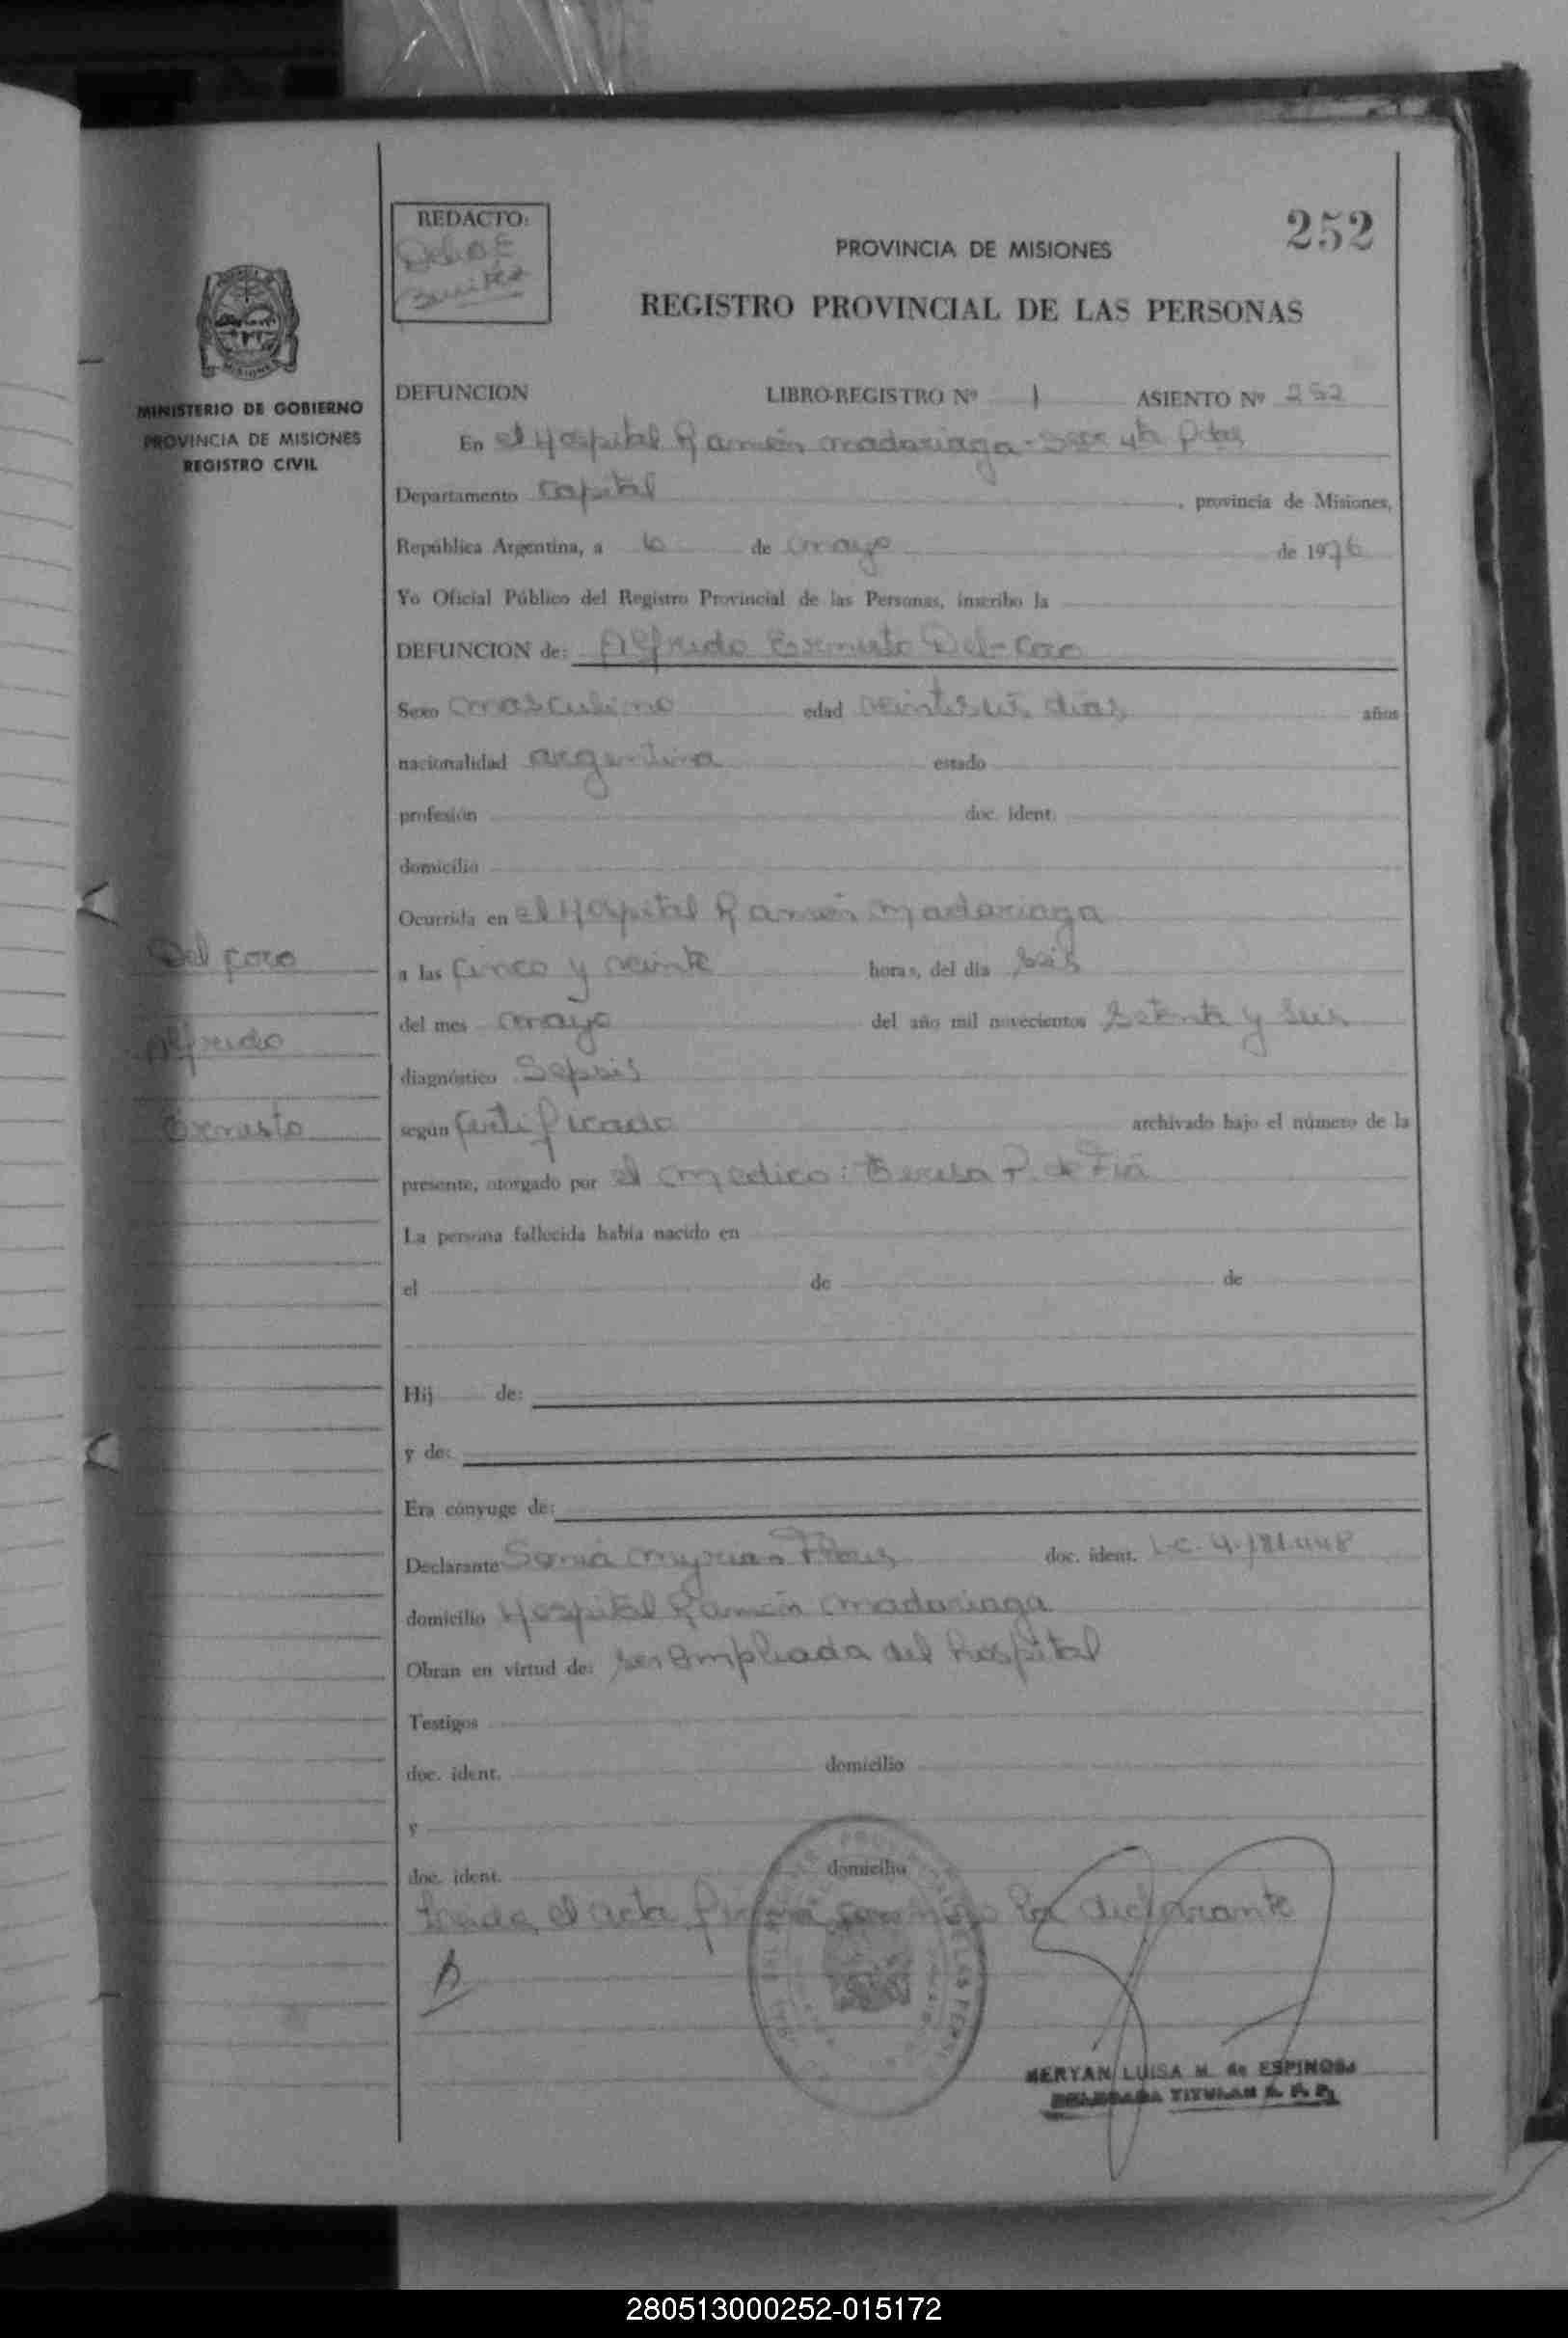 252
REDACTO:
Delia E
Benitez
PROVINCIA DE MISIONES
REGISTRO PROVINCIAL DE LAS PERSONAS
MISIONES
MINISTERIO DE GOBIERNO
PROVINCIA DE MISIONES
REGISTRO CIVIL
DEFUNCION LIBRO-REGISTRO Nº 1 ASIENTO Nº 252
En el Hospital Ramón Madariaga - Secc 4ta Pdas
Departamento Capital, provincia de Misiones,
República Argentina, a 6 de mayo de 1976
Yo Oficial Público del Registro Provincial de las Personas, inscribo la
DEFUNCION de: Alfredo Ernesto Del-Coro
Sexo masculino edad veintiseis dias años
nacionalidad argentina estado
profesión doc. ident.
domicilio
Ocurrida en el Hospital Ramón Madariaga
a las cinco y veinte horas, del día seis
del mes mayo del año mil novecientos setenta y seis
diagnóstico Sepsis
según certificado archivado bajo el número de la
presente, otorgado por el medico: Teresa P. de
La persona fallecida había nacido en
el de de
Hij de:
y de:
Era cónyuge de:
Declarante Sonia Myrian Flores doc. ident. L.C. 4.181.448
domicilio Hospital Ramón Madariaga
Obran en virtud de: ser Empleada del hospital
Testigos
doc. ident. domicilio
y
doc. ident. domicilio
Leida el acta firma conmigo la declarante
Del Coro
Alfredo
Ernesto
MERYAN LUISA M. de ESPINOSA
DELEGADA TITULAR R. P. P.
280513000252-015172